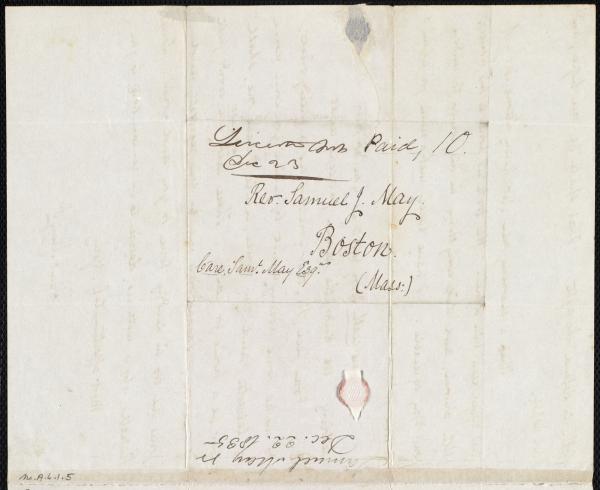 Paid, 10.
Dec 23
Rev. Samuel J. May.
Boston.
Care, Sam.l May Esq.r
(Mass:)
Samuel May Jr
Dec. 22. 1835
Ms.A.6.1.5